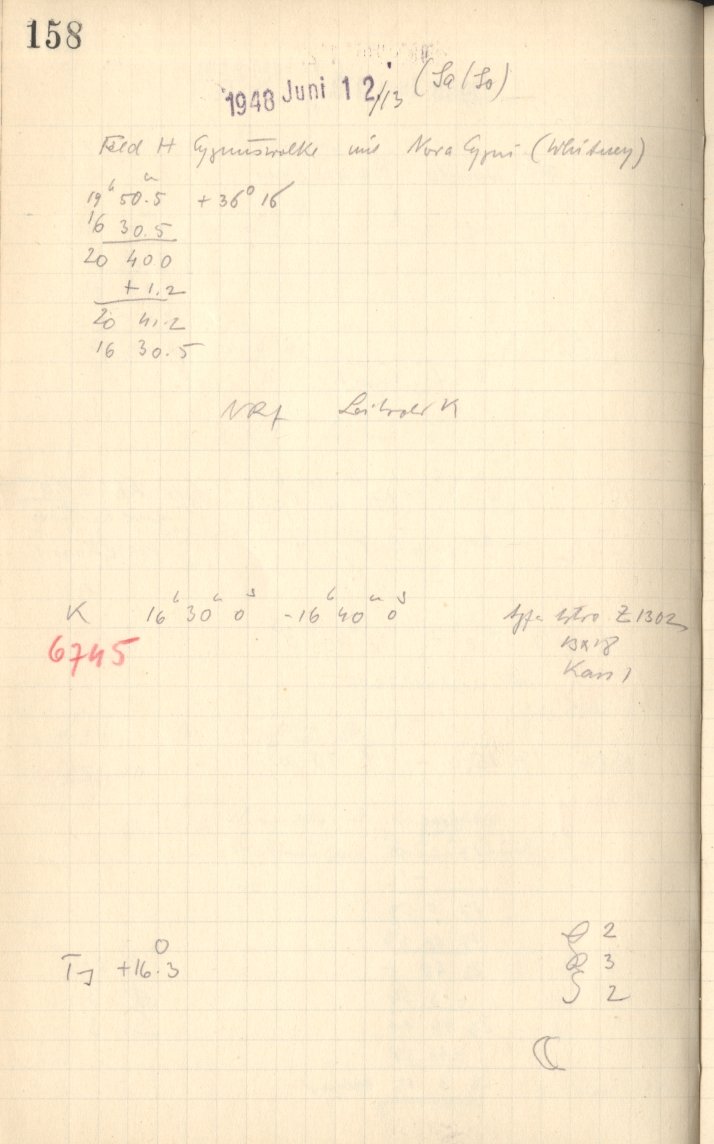 158
1948 Juni 12/13 (Sa/So)
Feld H Cygnuswolke mit Nova Cygni (Whitney)
19h 50m.5 +36° 16
16 30.5
20 40 0
+1.2
20 41.2
16 30.5
K 16h 30m 0s - 16h 40m 0s Agfa Astro Z 1302
6745
Kass 1
+16°.3
2
3
2